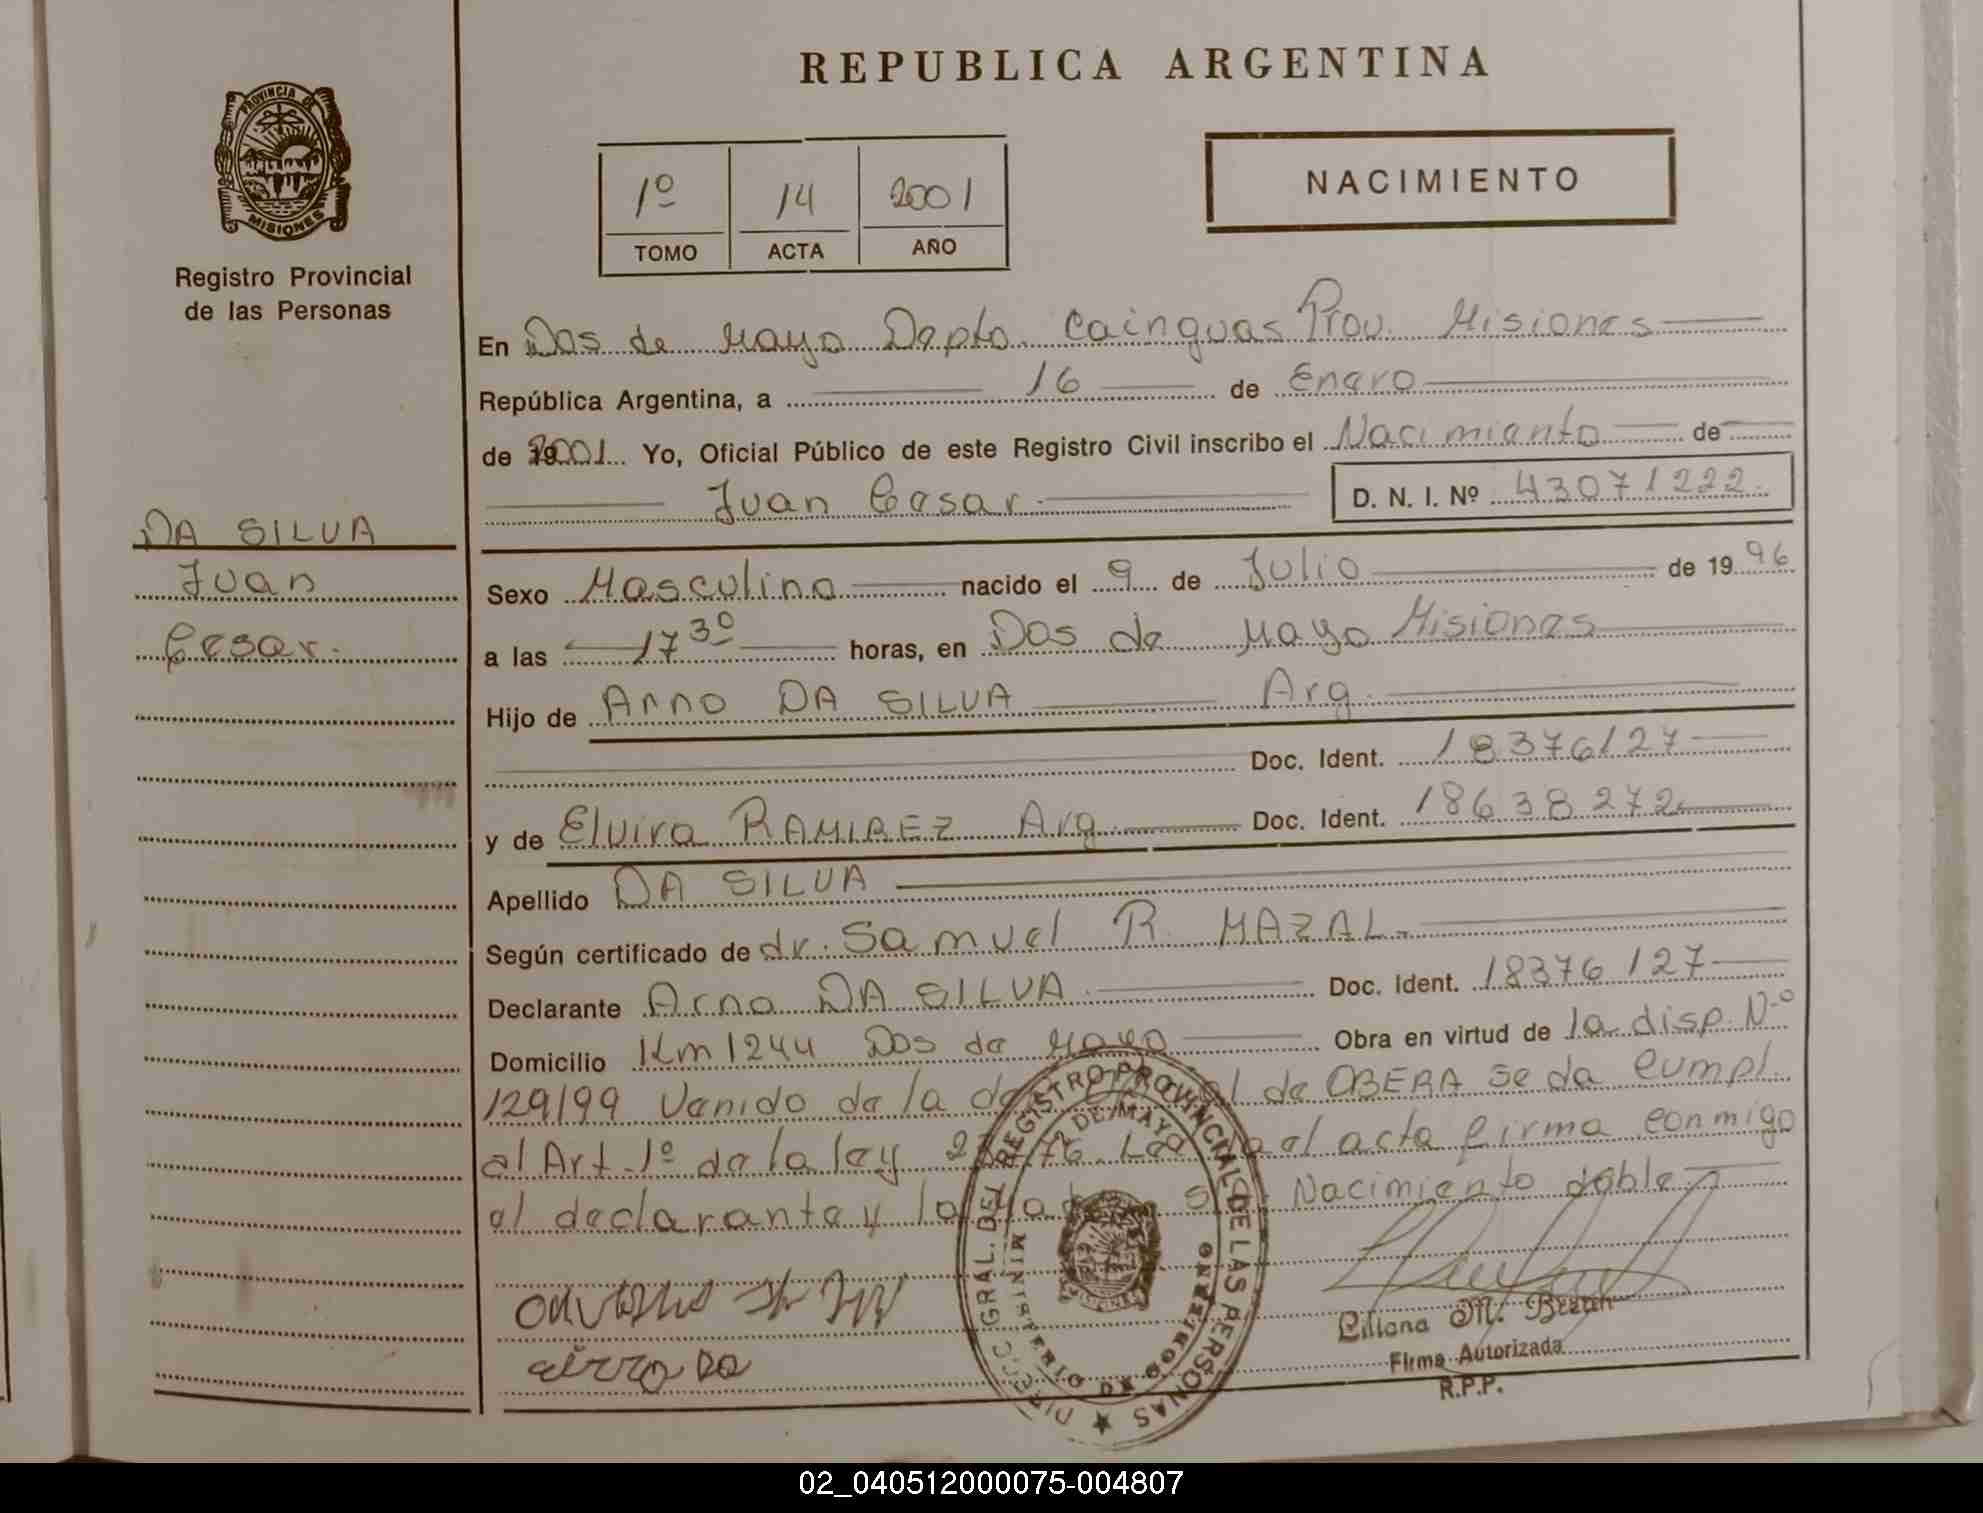 REPUBLICA ARGENTINA
PROVINCIA DE
MISIONES
Registro Provincial
de las Personas
1º 14 2001
TOMO ACTA AÑO
NACIMIENTO
En Dos de Mayo Depto. Cainguas Prov. Misiones
República Argentina, a 16 de Enero
de 2001 Yo, Oficial Público de este Registro Civil inscribo el Nacimiento de
Juan Cesar D. N. I. Nº 43071222
DA SILVA
Juan
Cesar.
Sexo Masculino nacido el 9 de Julio de 1996
a las 17 30 horas, en Dos de Mayo Misiones
Hijo de Arno DA SILVA Arg.
Doc. Ident. 18376127
y de Elvira RAMIREZ Arg. Doc. Ident. 18638272
Apellido DA SILVA
Según certificado de dr. Samuel R. MAZAL.
Declarante Arno DA SILVA Doc. Ident. 18376127
Domicilio Km 1244 Dos de Mayo Obra en virtud de la disp. Nº
129/99 Venido de la de OBERA se da cumpl.
al Art. 1º de la ley el acta firma conmigo
el declarante y la Nacimiento doble
DIRECC. GRAL. DEL REGISTRO PROVINCIAL DE LAS PERSONAS
MINISTERIO DE GOBIERNO
DE MAYO
MISIONES
Liliana M.
Firma Autorizada
R.P.P.
02_040512000075-004807